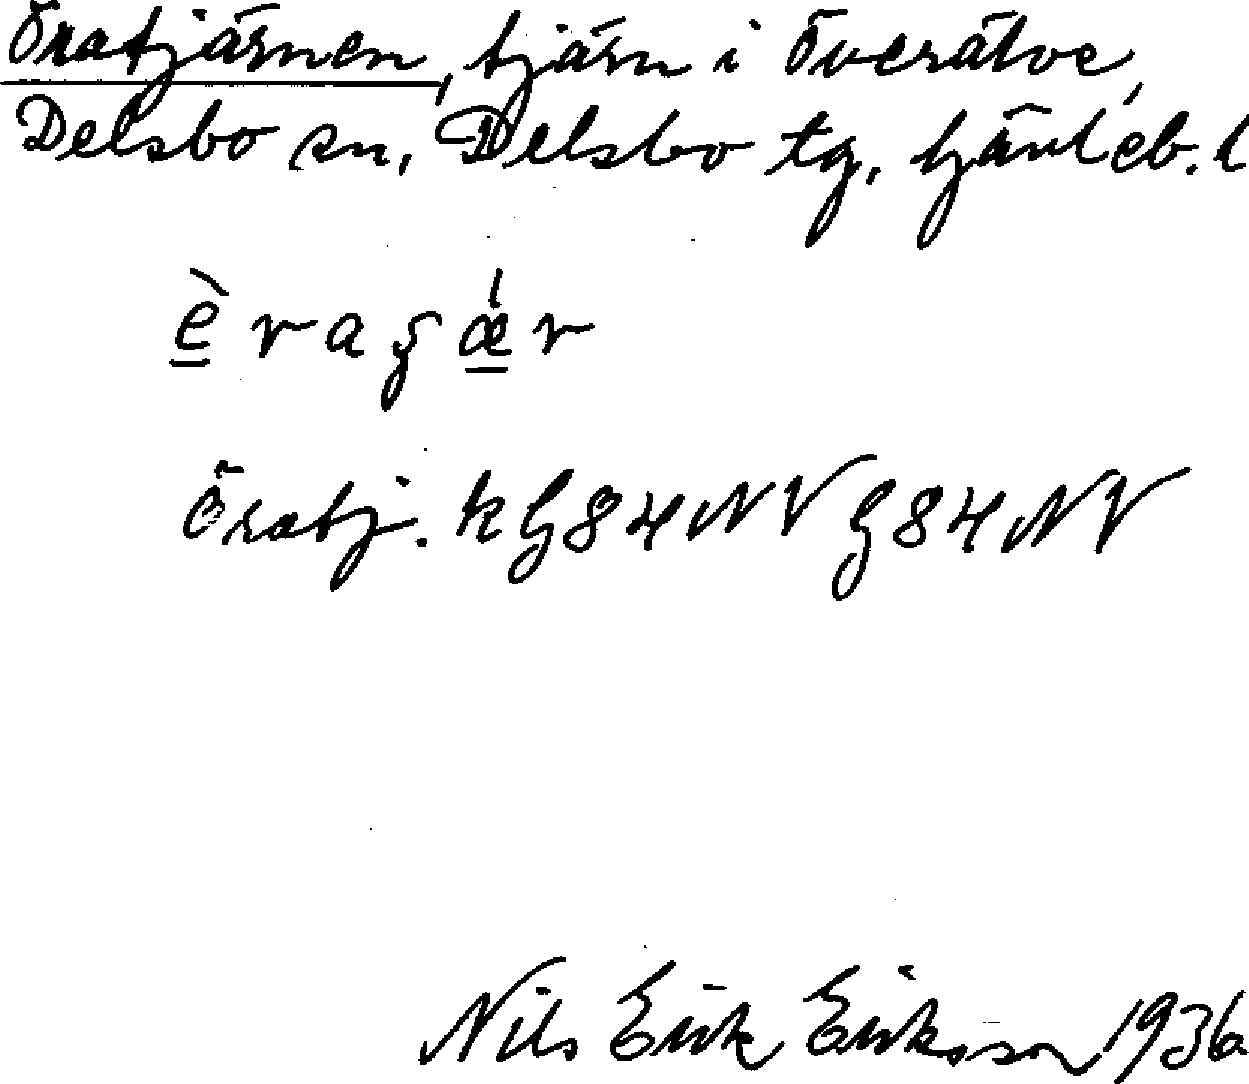 Öratjärnen, tjärn i Överälve,
Delsbo sn, Delsbo tg, Gävleb. l
è r a ʂ æ̀ r
Öratj. k G 84 NV G 84 NV
Nils Erik Eriksson 1936